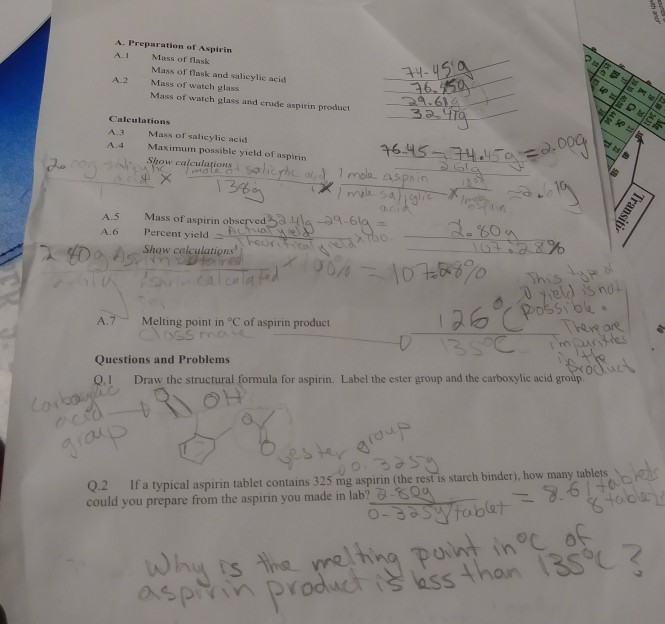 A. Preparation of Aspirin
A.1 Mass of flask 74.45g
Mass of flask and salicylic acid 76.45g
A.2 Mass of watch glass 29.61g
Mass of watch glass and crude aspirin product 32.41g
Calculations
A.3 Mass of salicylic acid 76.45 - 74.45g = 2.00g
A.4 Maximum possible yield of aspirin 2.61g
Show calculations
1 mole of salicylic acid 1 mole aspirin
acid X 138g X 1 mole salicylic X = 2.61g
acid
A.5 Mass of aspirin observed 32.41g - 29.61g = 2.80g
A.6 Percent yield = Actual yield 107.28%
Show calculations Theoritical yield x 100
2.80g Aspirin obtained x 100% = 107.28%
calculated
This type of
yield is not
possible.
There are
impurities
in the
product
A.7 Melting point in °C of aspirin product 126°C
Classmate 135°C
Questions and Problems
Q.1 Draw the structural formula for aspirin. Label the ester group and the carboxylic acid group.
carboxylic
acid
group
OH
O
ester group
0.325g
Q.2 If a typical aspirin tablet contains 325 mg aspirin (the rest is starch binder), how many tablets
could you prepare from the aspirin you made in lab? 2.80g = 8.61 tablets
0.325g/tablet 8 tablets
Why is the melting point in °C of
aspirin product is less than 135°C?
Transiti